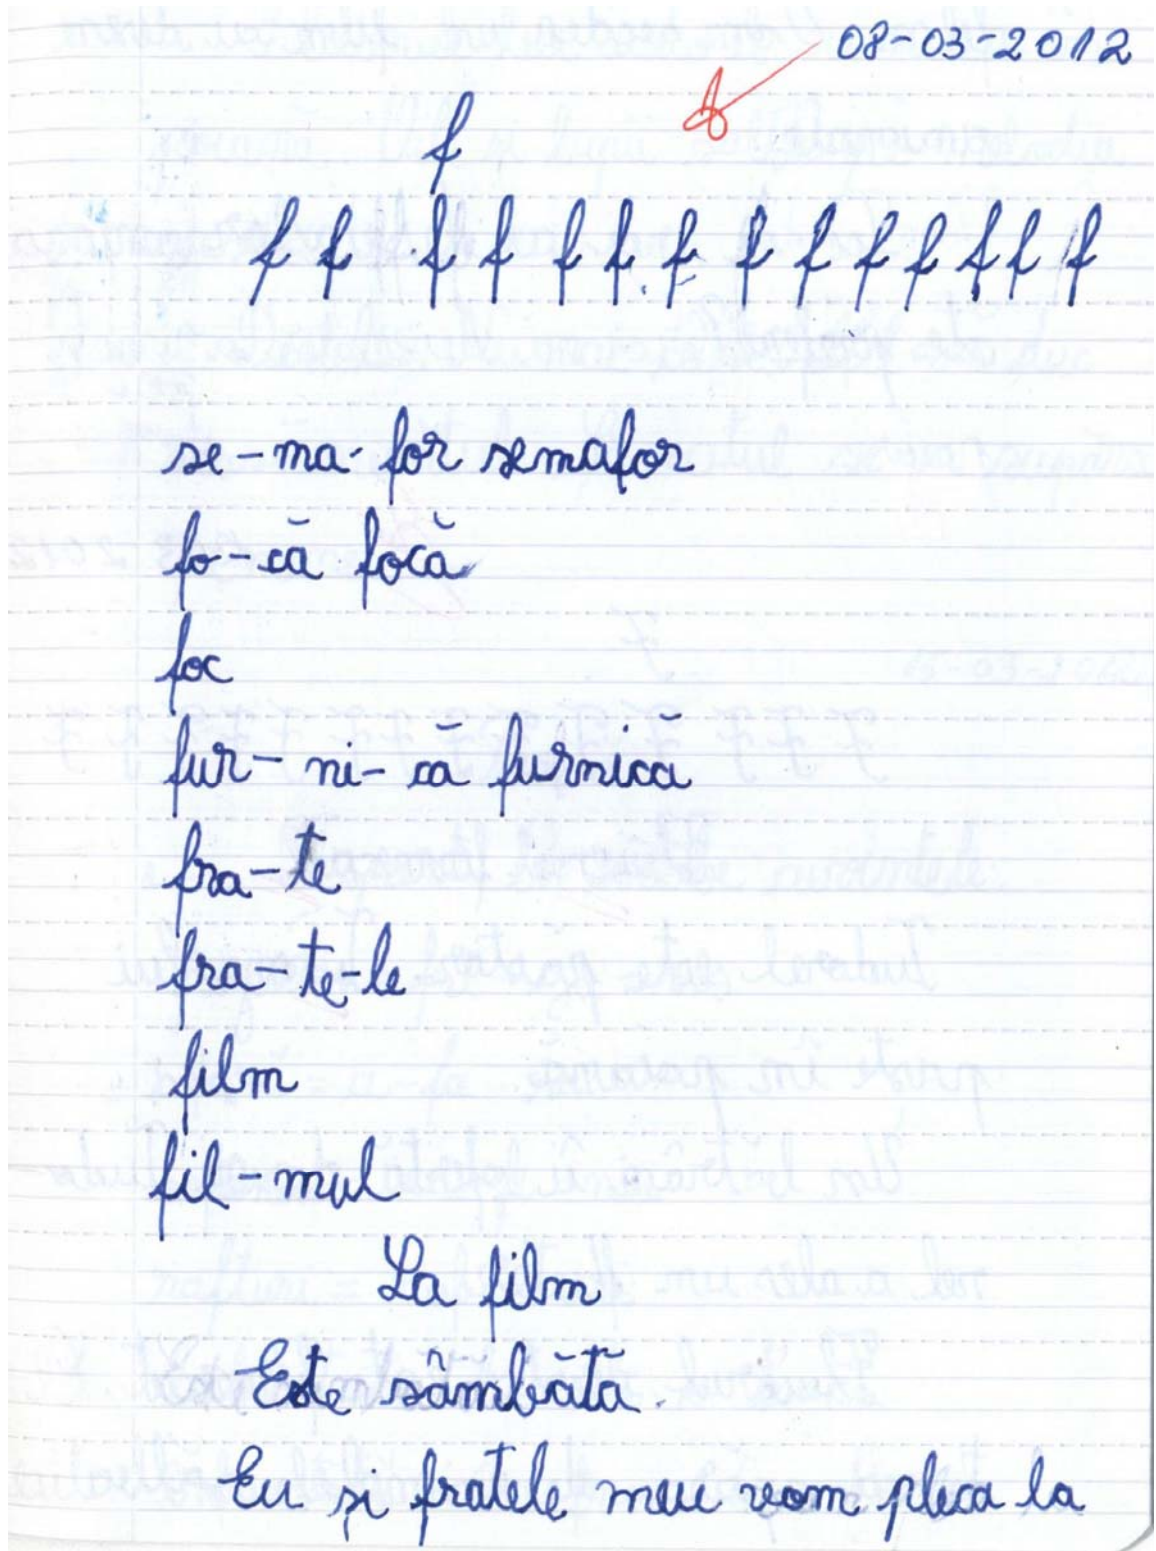 08-03-2012
f
f f f f f f f f f f f f f f
se-ma-for semafor
fo-că focă
foc
fur-ni-că furnică
fra-te
fra-te-le
film
fil-mul
La film
Este sâmbătă.
Eu și fratele meu vom pleca la